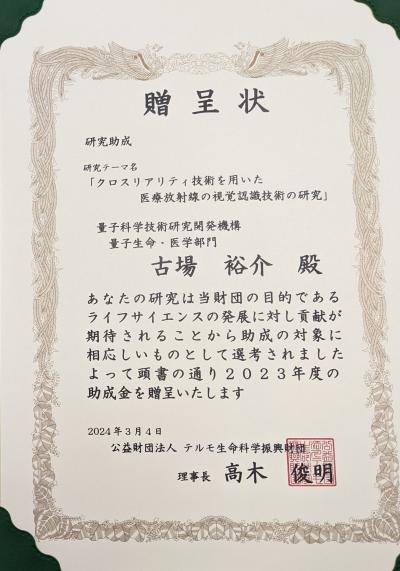 贈呈状
研究助成
研究テーマ名
「クロスリアリティ技術を用いた
医療放射線の視覚認識技術の研究」
量子科学技術研究開発機構
量子生命・医学部門
古場 裕介 殿
あなたの研究は当財団の目的である
ライフサイエンスの発展に対し貢献が
期待されることから助成の対象に
相応しいものとして選考されました
よって頭書の通り2023年度の
助成金を贈呈いたします
2024年3月4日
公益財団法人 テルモ生命科学振興財団
理事長 高木 俊明